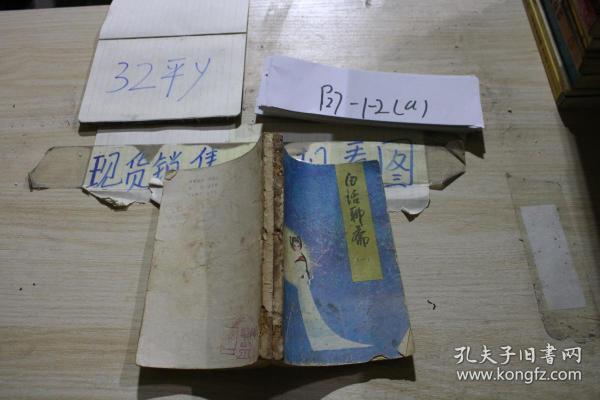 32平y
阳-1-2(a)
现货销售
看图
白话聊斋
(一)
孔夫子旧书网
www.kongfz.com